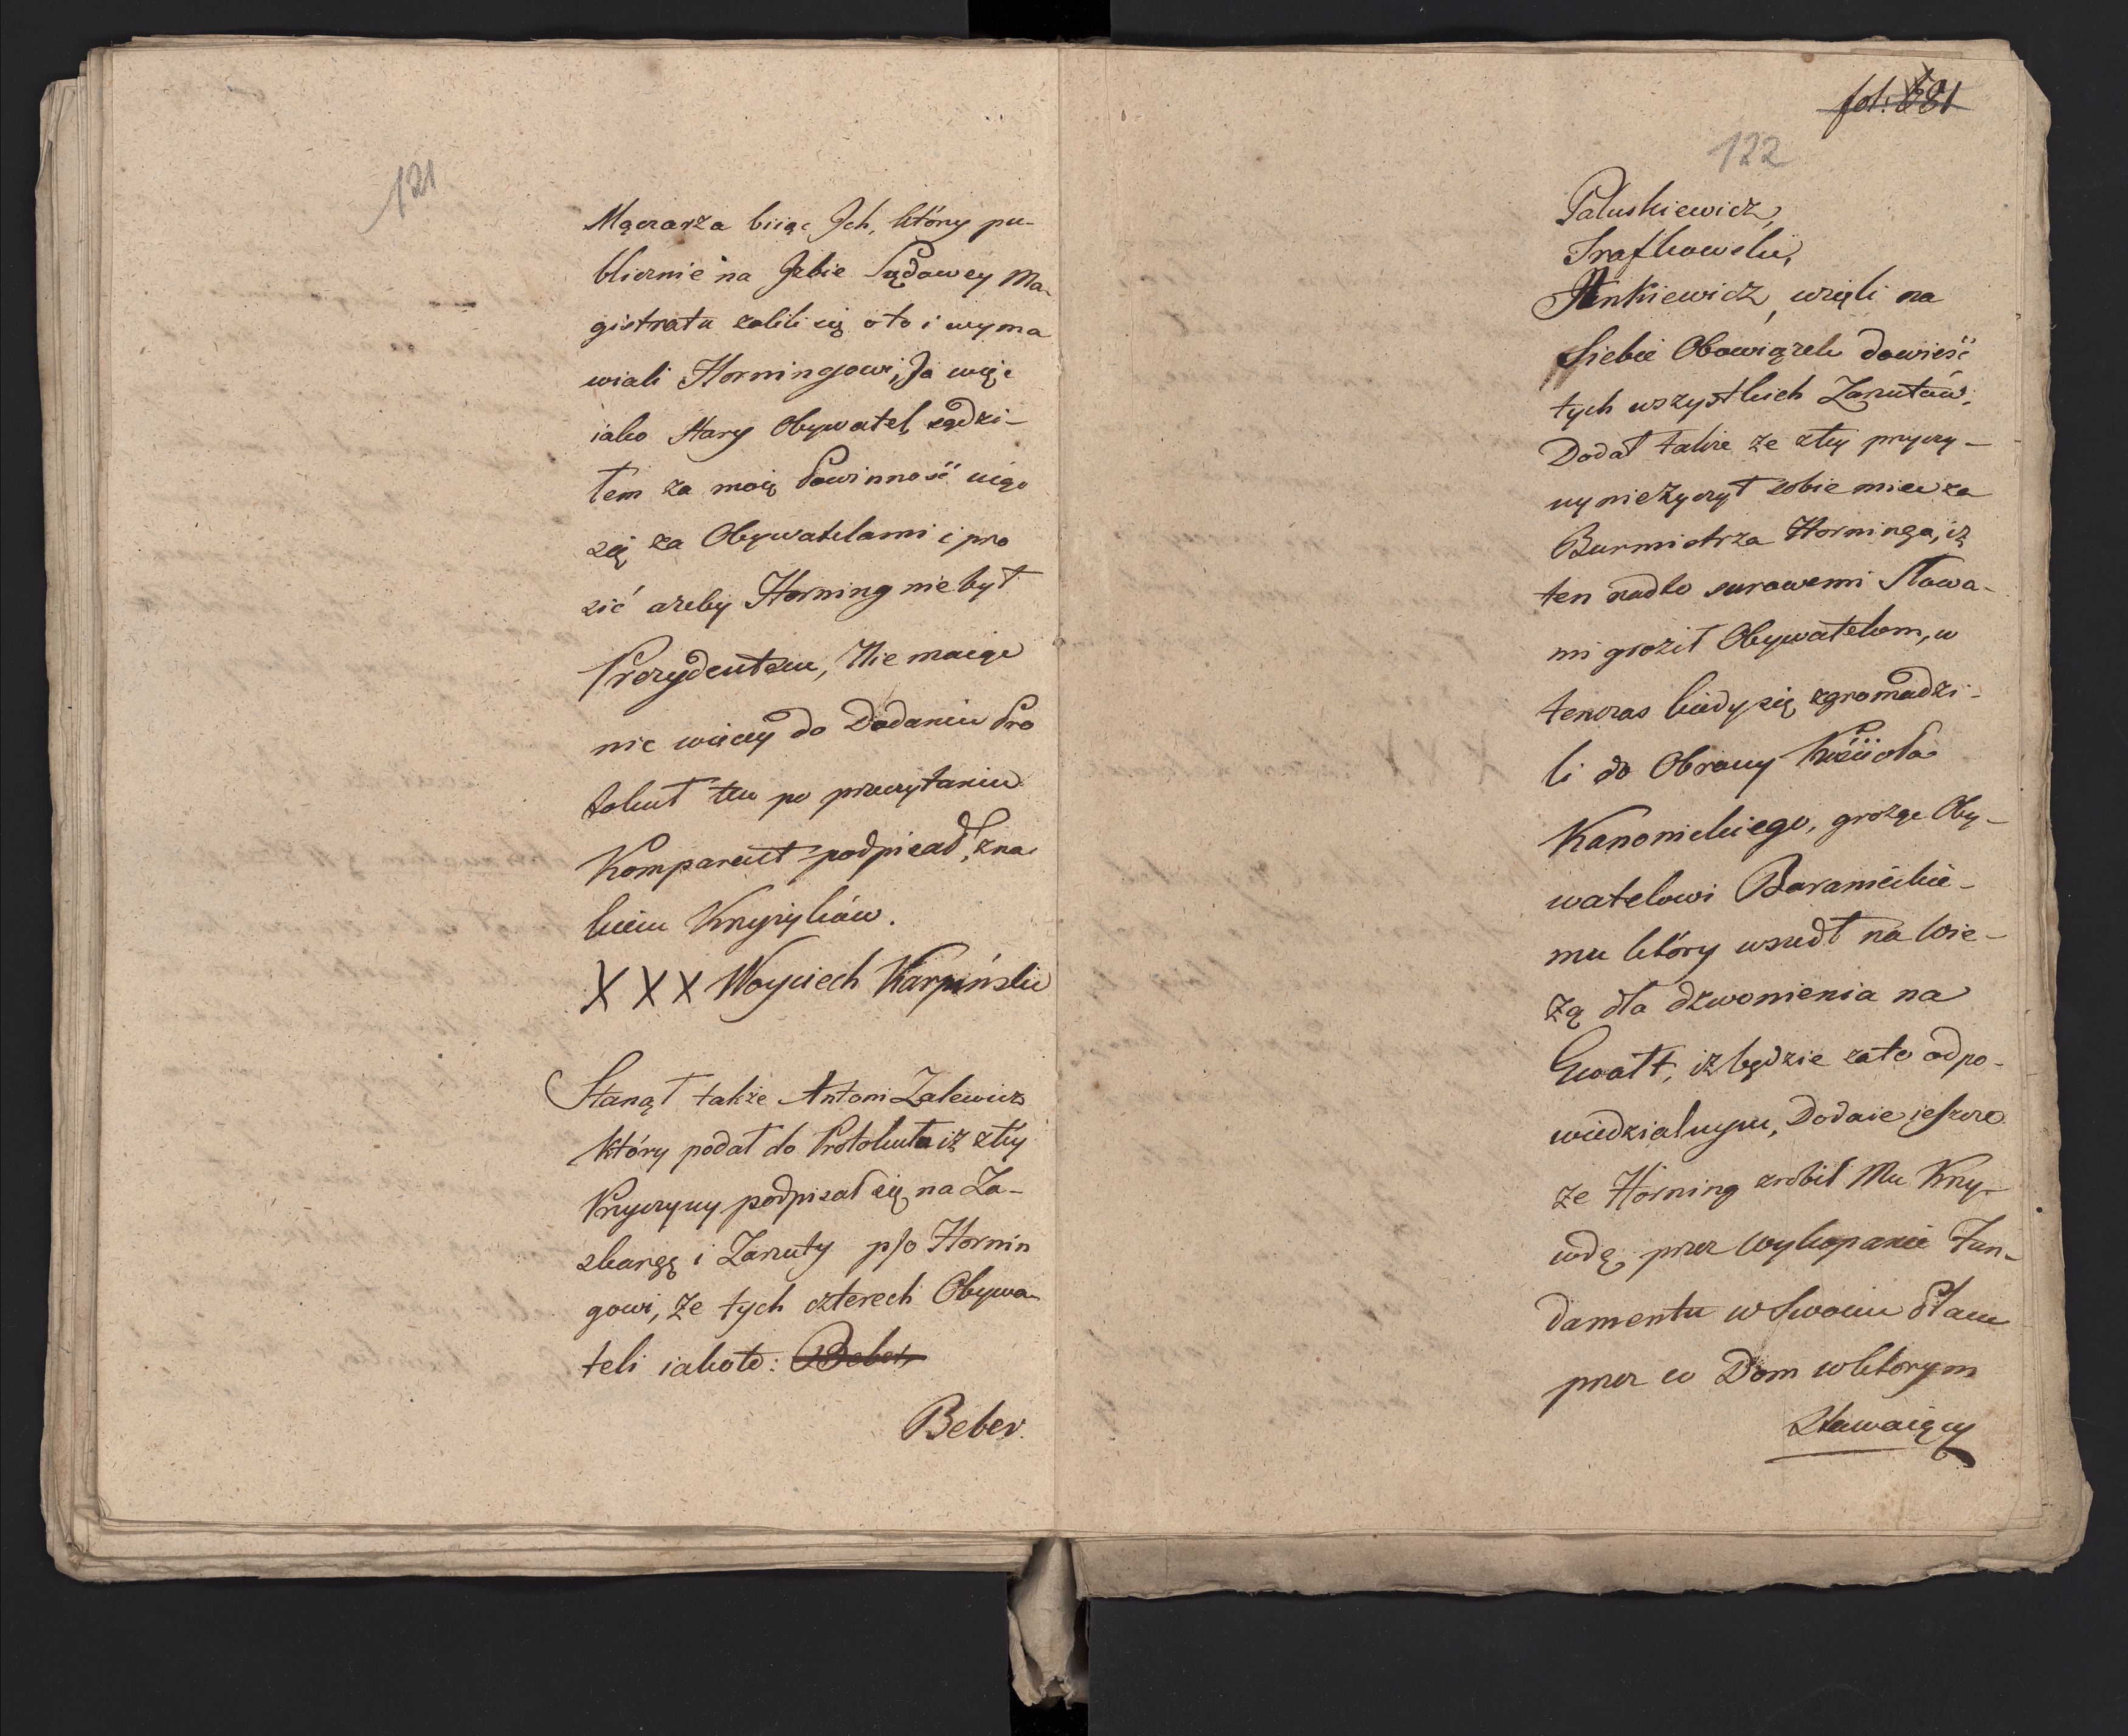 121
Mączarza biiąc Jch, który pu-
blicznie na Jzbie Sądowey Ma-
gistratu zalili się oto i wyma
wiali Horningowi, Ja więc
iako Stary Obywatel sądzi-
łem za moię Powinność uiąć
się za Obywatelami i pro
sić ażeby Horning nie był
Prezydentem, Nie maiąc
nic więcey do Dodaniu Pro
tokuł ten po przeczytaniu
Komparent podpisał, zna
kiem Krzyżyków.
X X X Woyciech Karpiński
Stanął także Antoni Zalewicz
który podał do Protokuła iż z tey
Przyczyny podpisał się na Za-
skargę i Zarzuty p/o Hornin
gowi, że tych czterech Obywa-
teli iakoto: Beber
Beber
fol: 681
122
Paluskiewicz,
Trafkowski,
Jenkiewicz, wzięli na
Siebie Obowiązek dowieść
tych wszystkich Zarzutów,
Dodał także że z tey przyczy-
ny nieżyczył sobie miec za
Burmistrza Horninga, iż
ten nadto surowemi Słowa-
mi groził Obywatelom, w
tenczas kiedy się zgromadzi-
li do Obrony Kościoła
Kanonickiego, grożąc Oby-
watelowi Baranieckie-
mu który wszedł na Wie-
żą dla dzwonienia na
Gwałt, iż będzie zato odpo-
wiedzialnym, Dodaie ieszcze
że Horning zrobił Mu Krzy-
wdę przez Wykopanie Fun-
damentu w Swoim Placu
przez co Dom w którym
Stawaiący